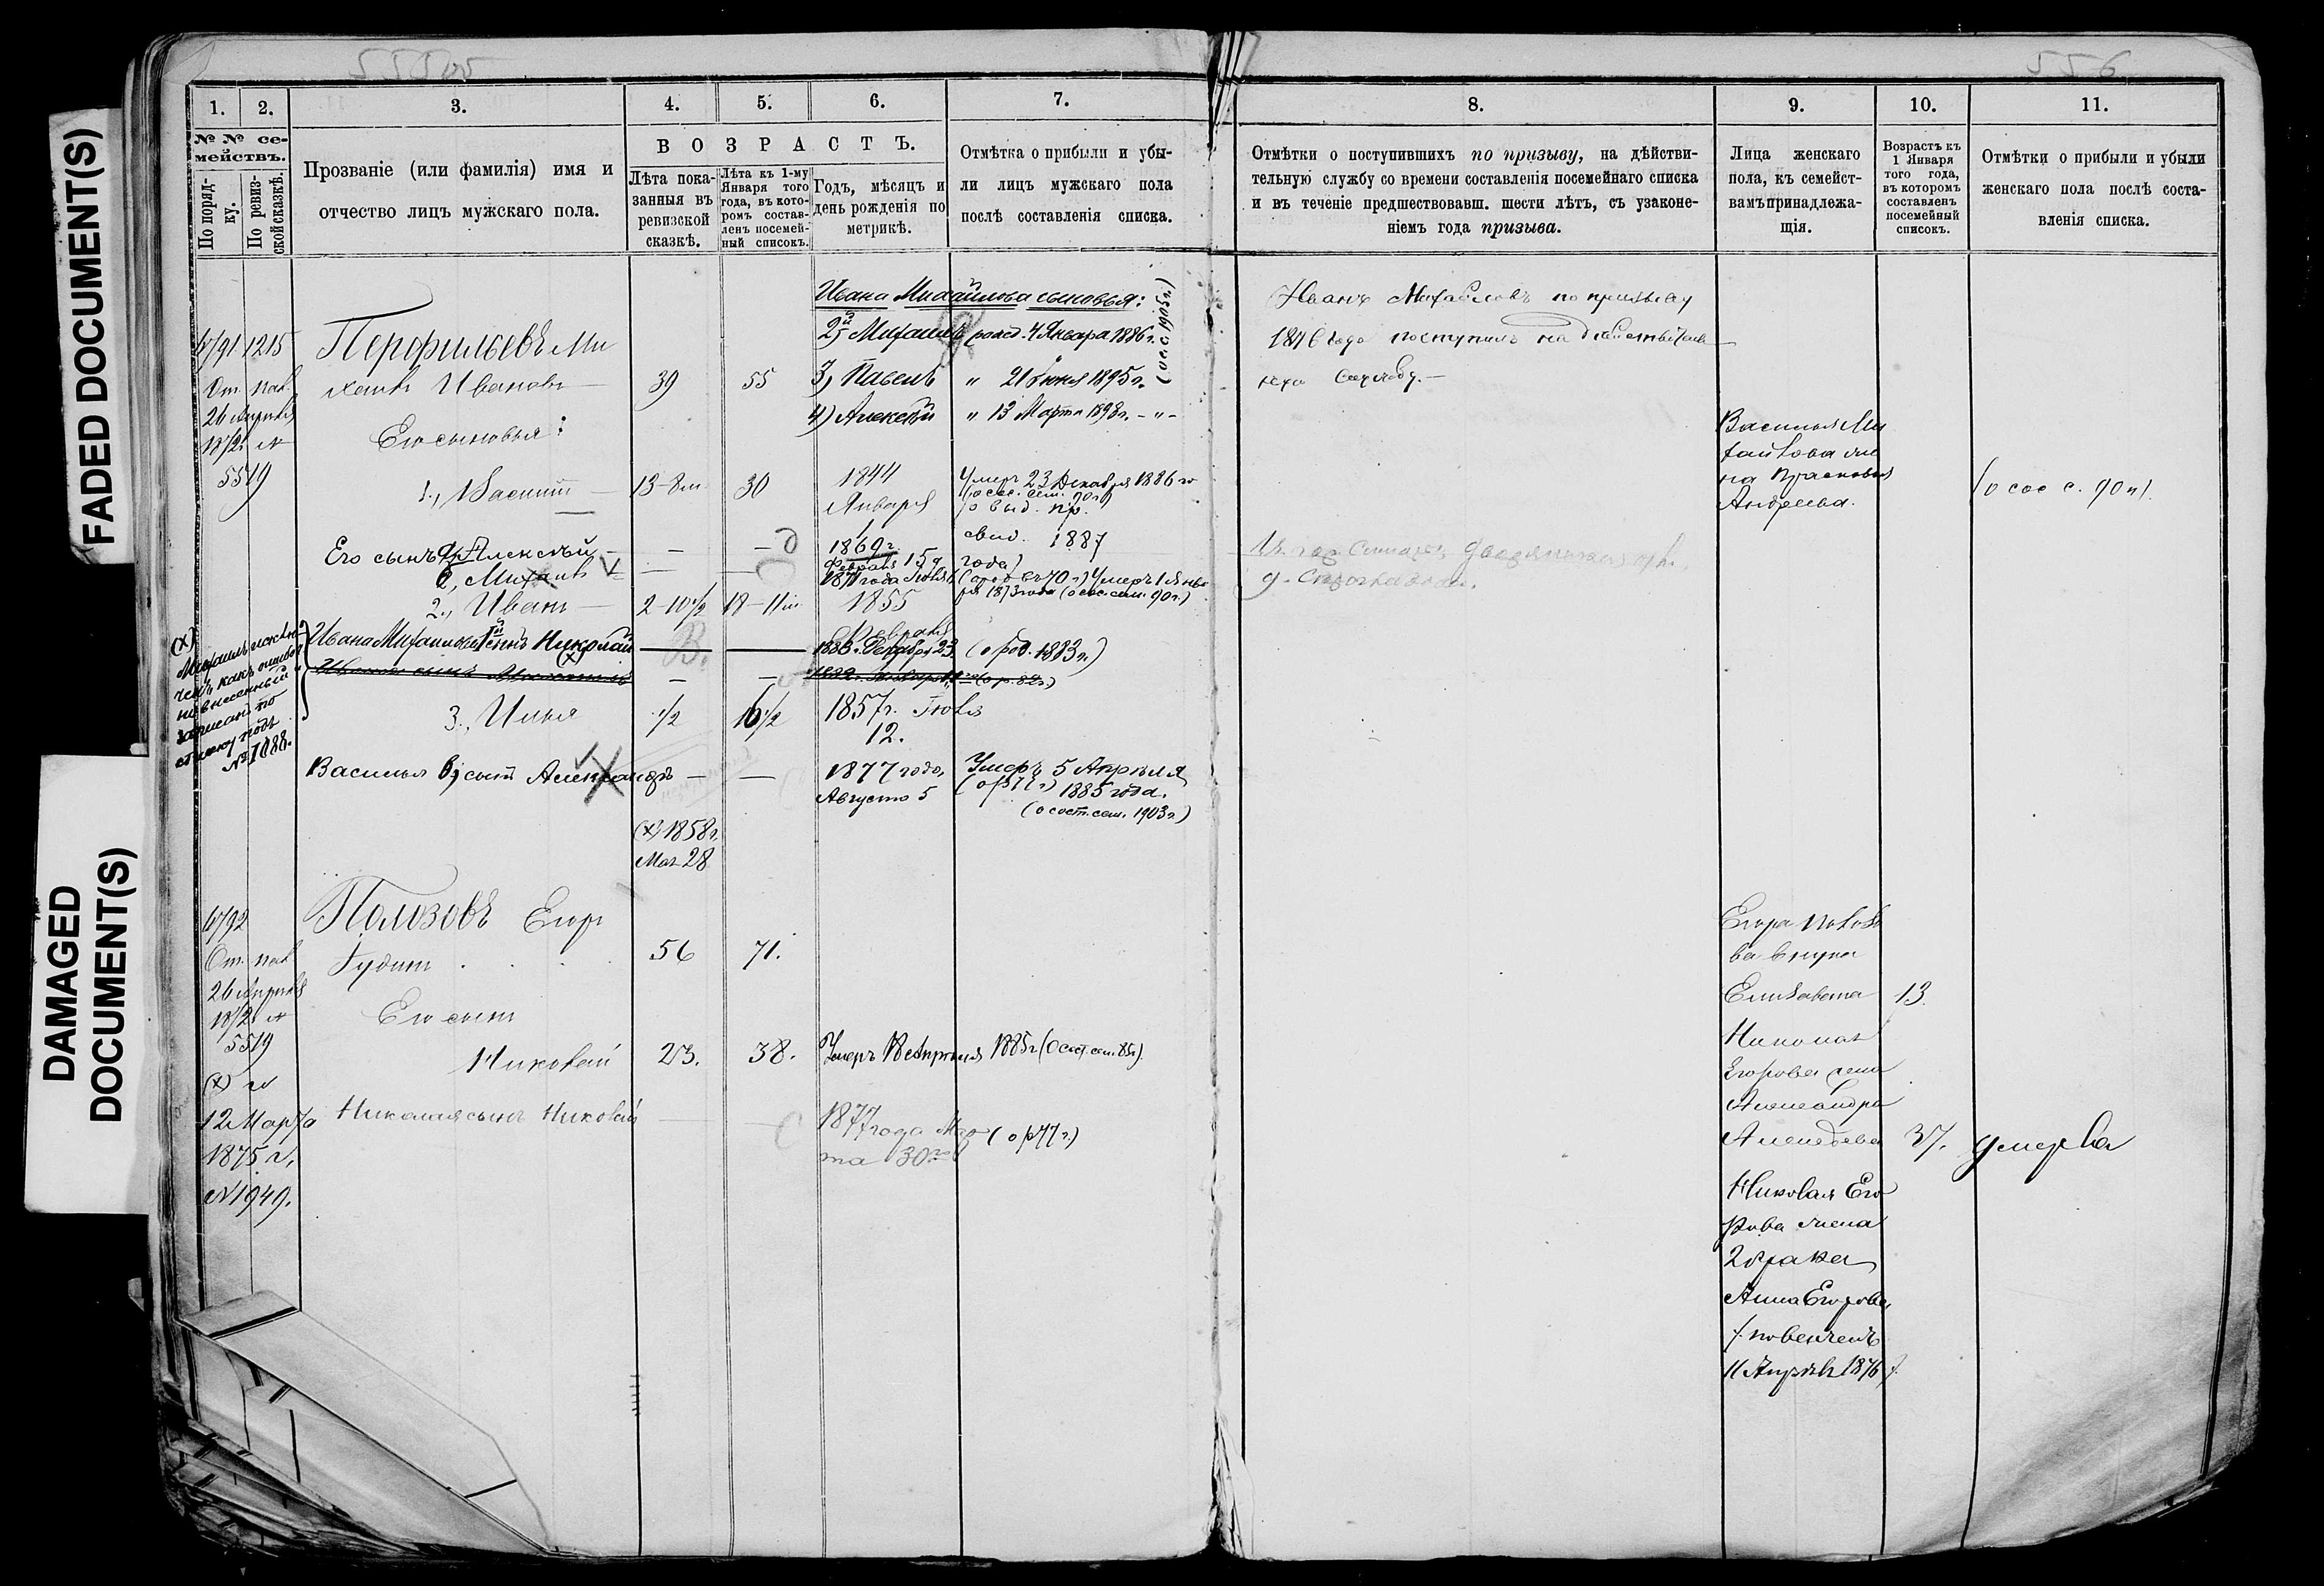 FADED DOCUMENT(S)
DAMAGED
DOCUMENT(S)
556
1.
2.
3.
4.
5.
6.
7.
№ № се-
мействъ.
По поряд-
ку.
По ревиз-
ской сказкѣ.
Прозваніе (или фамилія) имя и
отчество лицъ мужскаго пола.
ВОЗРАСТЪ.
Лѣта пока-
занныя въ
ревизской
сказкѣ.
Лѣта къ 1-му
Января того
года, въ кото-
ромъ состав-
ленъ посемей-
ный списокъ.
Годъ, мѣсяцъ и
день рожденія по
метрикѣ.
Отмѣтка о прибыли и убы-
ли лицъ мужскаго пола
послѣ составленія списка.
Ивана Михайлова сыновья:
2й Михаилъ рожд. 4 Января 1886 г.
3) Павелъ " 21 Іюня 1895 г.
4) Алексѣй " 13 Марта 1898 г. - " -
(о сос. 1905 г.)
1215
Перфильевъ Ми
хаилъ Ивановъ
39
55
26 Апрѣля
5519
Его сыновья:
1., Василій
13-8 м
30
1844
Января
1
Умеръ 23 Декабря 1886 го
(о сос. сем. 90 г)
(о выд. пр.
свид. 1887
года)
Его сынъ а, Алексѣй
1869 г.
Февраля 15 д
б, Михаилъ
187 года Іюля
Умеръ 1 Янва
ря 1873 года (о сос. сем. 90 г.)
2., Иванъ
2-10 1/2
18-11 м
1855
Февраля
Ивана Михайлова 1й сынъ Николай
(х)
1883 г. Февраля 23.
(о род. 1883 г.)
Иванов сынъ Михаилъ
(о р. 82 г.)
(х)
Михаилъ исклю
ченъ какъ ошибоч
но внесенный
записанъ по
списку подъ
№ 1088.
3., Илья
1/2
16 1/2
1857 г. Іюля
12.
Василья б, сынъ Александръ
1877 года,
Августа 5
Умеръ 5 Апрѣля
(о р 77 г) 1885 года.
(о сост. сем. 1903 г.)
(х) 1858 г.
Мая 28
Полозовъ Егоръ
56
71.
26 Апрѣля
5519
Его сынъ
Николай
23.
38.
Умеръ 18 Апрѣля 1885 г (О сост. сем. 85 г).
(х)
12 Марта
1875 г.
№ 1949.
Николая сынъ Николай
1877 года Мар
та 30го
(о р 77 г.)
8.
9.
10.
11.
Отмѣтки о поступившихъ по призыву, на дѣйстви-
тельную службу со времени составленія посемейнаго списка
и въ теченіе предшествовавш. шести лѣтъ, съ узаконе-
ніемъ года призыва.
Лица женскаго
пола, къ семейст-
вамъ принадлежа-
щія.
Возрастъ къ
1 Января
того года,
въ которомъ
составленъ
посемейный
списокъ.
Отмѣтки о прибыли и убыли
женскаго пола послѣ соста-
вленія списка.
Иванъ Михайловъ по призыву
1876 года поступилъ на дѣйствитель
ную службу.
Василья Ми
хайлова же
на Прасковья
Андреева.
(о сос с. 90 г).
Егора Полозо
ва внука
Елизавета
13.
Николая
Егорова жена
Александра
Алексѣева
37.
умерла
Николая Его
рова жена
2 брака
Анна Егорова
/. повѣнчанъ
11 Апрѣля 1876 /.